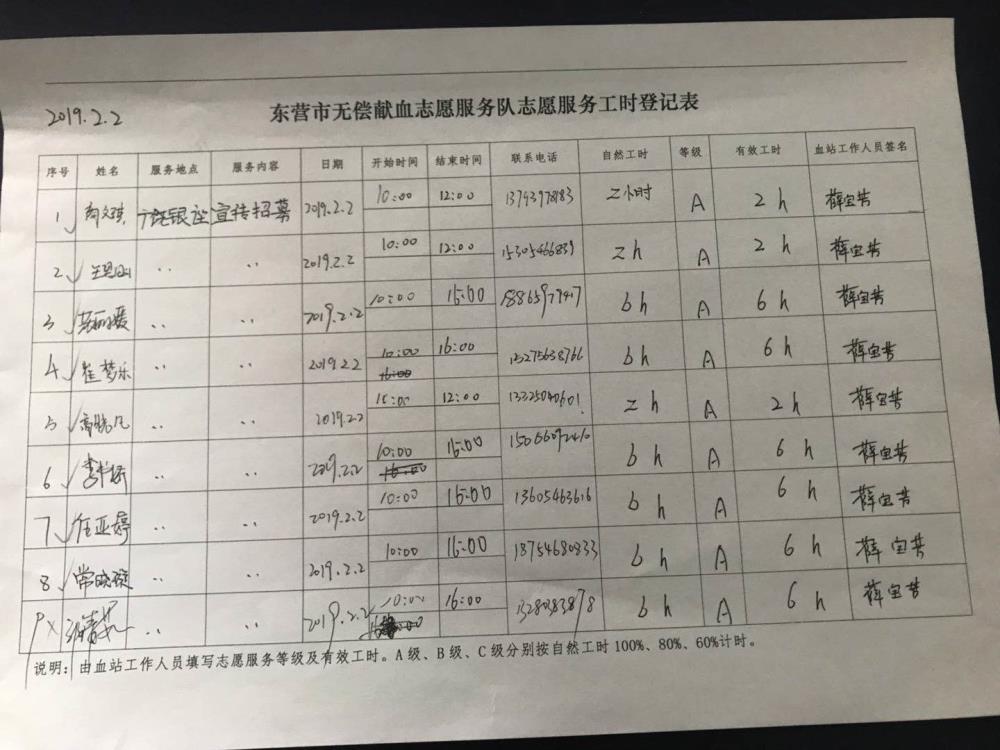 2019.2.2
东营市无偿献血志愿服务队志愿服务工时登记表
序号 姓名 服务地点 服务内容 日期 开始时间 结束时间 联系电话 自然工时 等级 有效工时 血站工作人员签名
1 银座 宣传招募 2019.2.2 10:00 12:00 2小时 A 2h 薛宝芳
2 〃 〃 2019.2.2 10:00 12:00 15305466839 2h A 2h 薛宝芳
3 〃 〃 2019.2.2 10:00 16:00 6h A 6h 薛宝芳
4 崔梦乐 〃 〃 2019.2.2 10:00 16:00 6h A 6h 薛宝芳
5 高晓凡 〃 〃 2019.2.2 10:00 12:00 13325040601 2h A 2h 薛宝芳
6 〃 〃 2019.2.2 10:00 16:00 6h A 6h 薛宝芳
7 任亚婷 〃 〃 2019.2.2 10:00 16:00 13605463616 6h A 6h 薛宝芳
8 〃 〃 2019.2.2 10:00 16:00 18754680833 6h A 6h 薛宝芳
9 〃 〃 2019.2.2 10:00 16:00 6h A 6h 薛宝芳
说明：由血站工作人员填写志愿服务等级及有效工时。A级、B级、C级分别按自然工时100%、80%、60%计时。